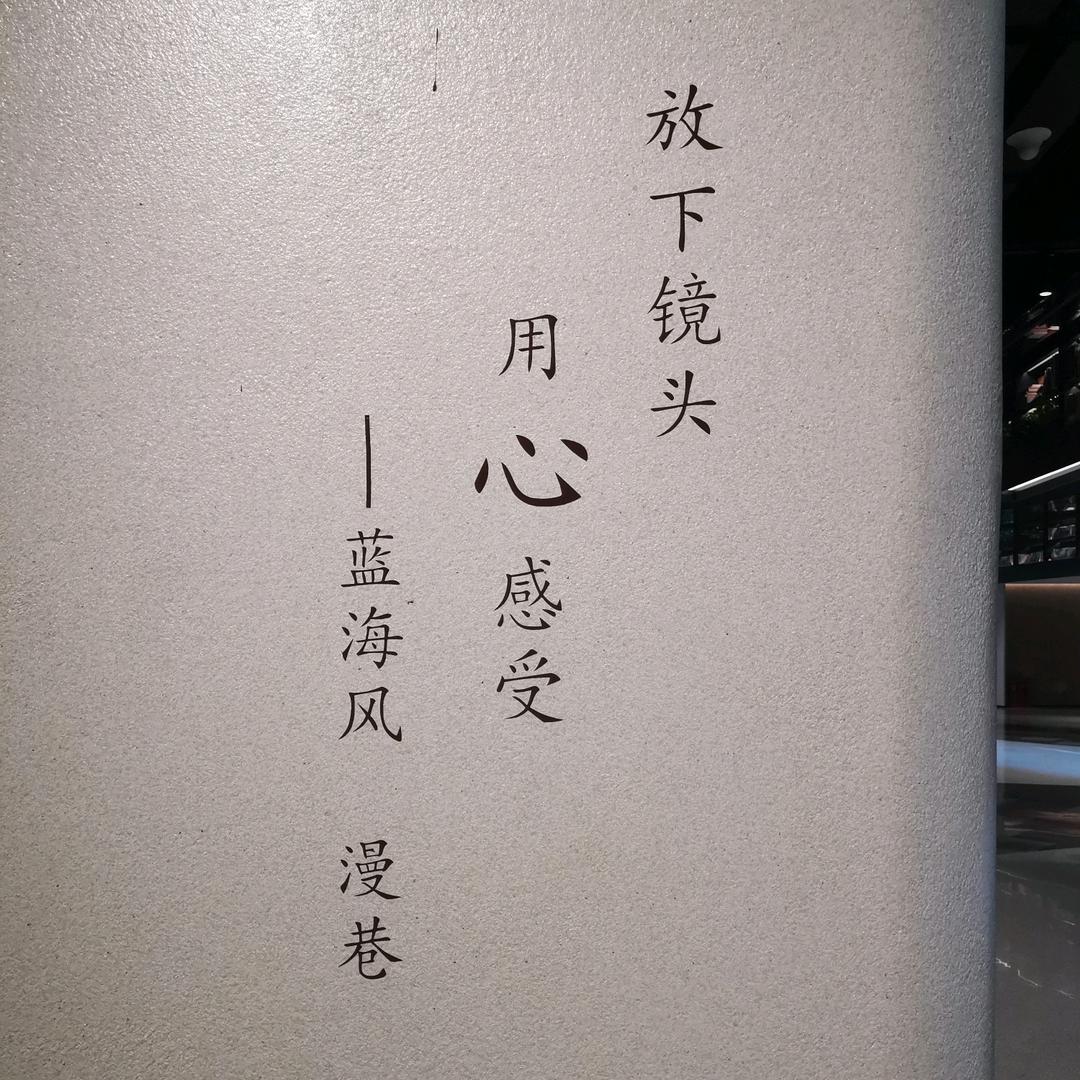 放下镜头
用心感受
—蓝海风 漫巷